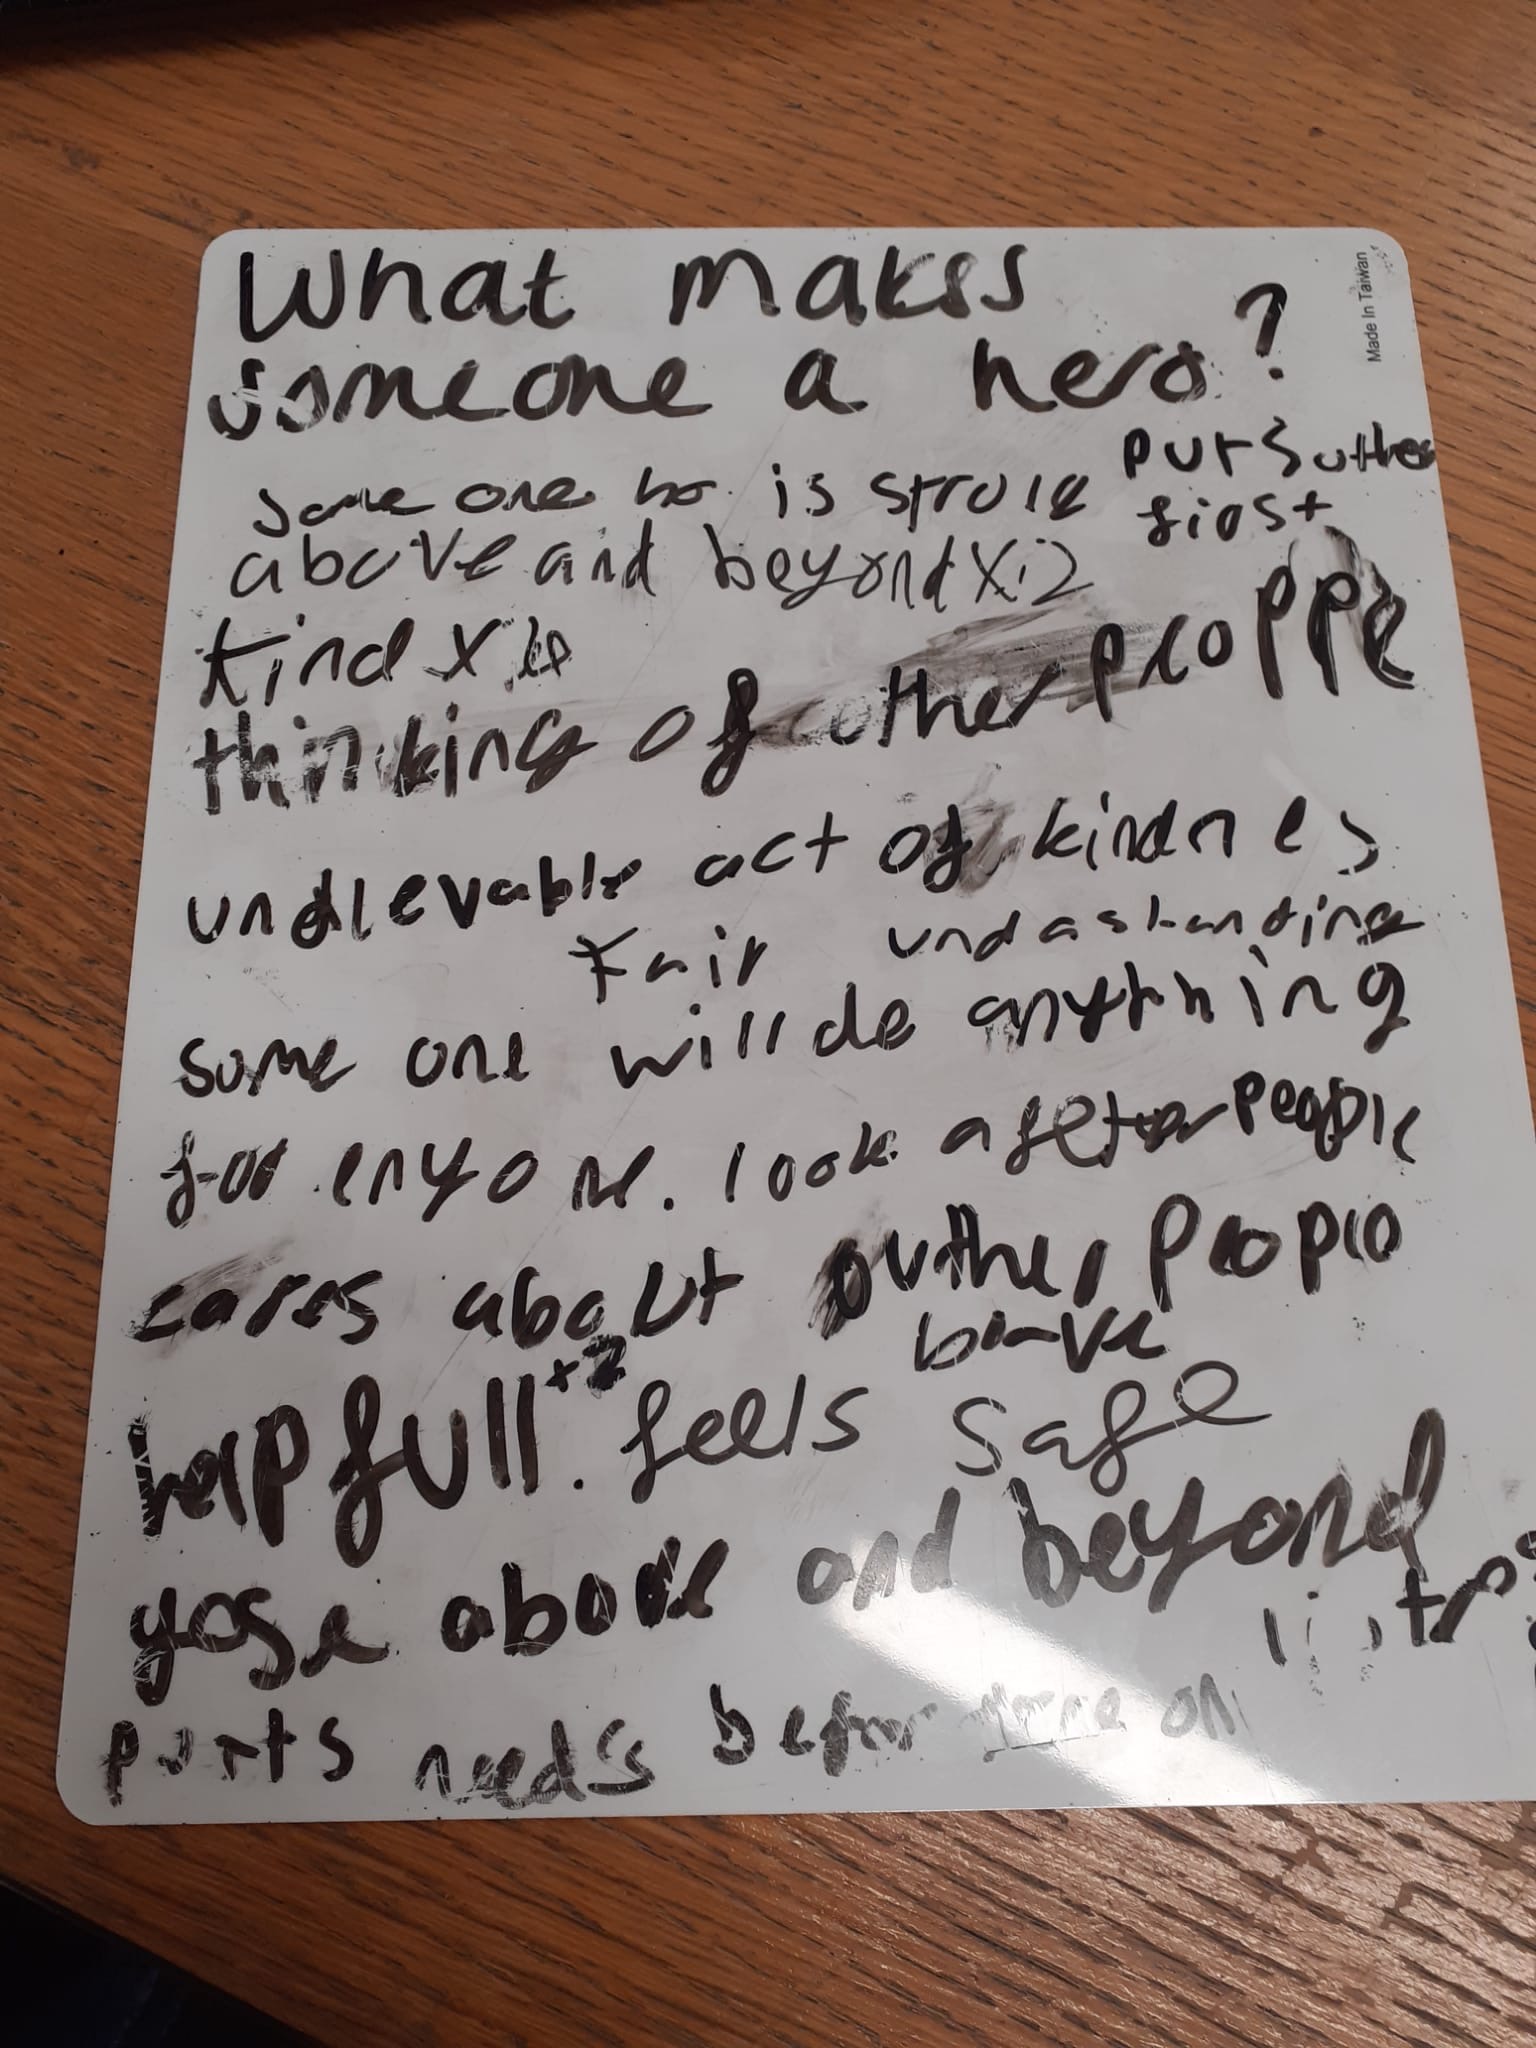 What makes
Made In Taiwan
someone a hero?
some one ho is strong
puts uther
first
above and beyond x2
kind x
thinking of other people
act of kindnes
fair undastanding
some one will do anything
for enyone. look after people
cares about outher people
brave
helpfull x2. feels safe
gose above and beyond
puts needs befor on